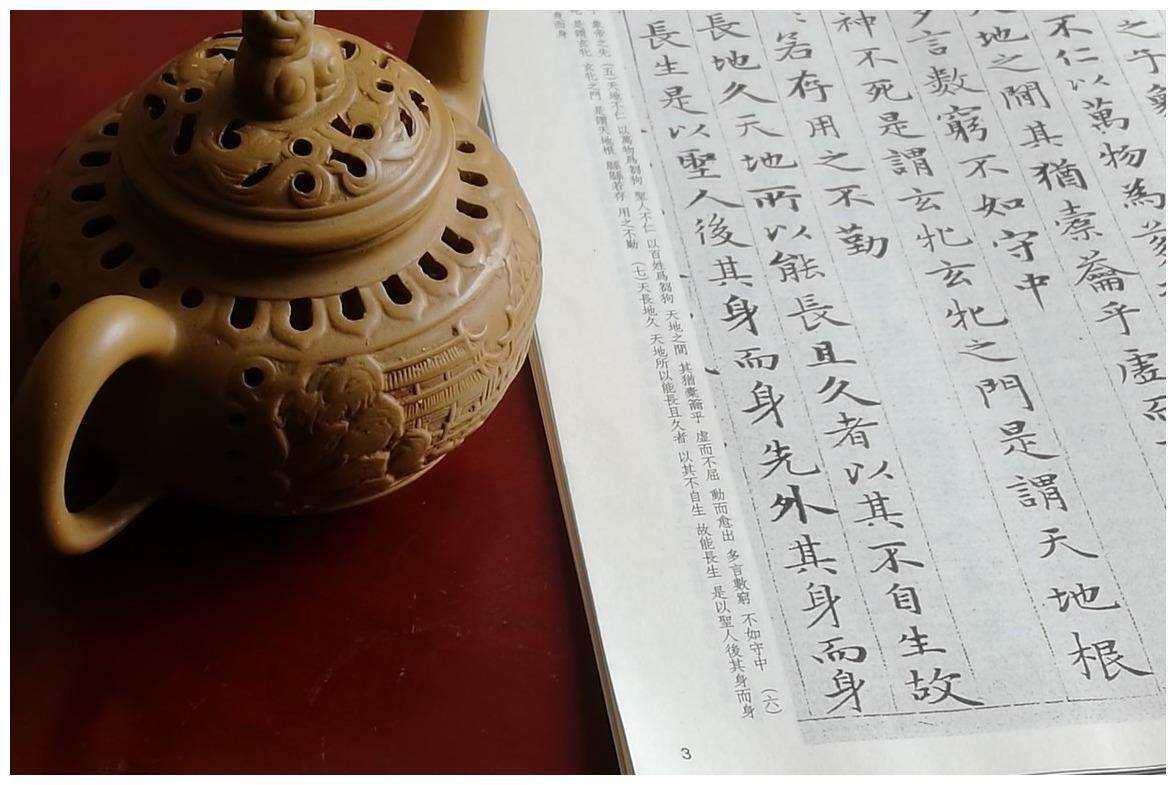 之子
不仁以萬物為芻
地之間其猶橐籥乎虛而
言數窮不如守中
神不死是謂玄牝玄牝之門是謂天地根
若存用之不勤
長地久天地所以能長且久者以其不自生故
長生是以聖人後其身而身先外其身而身
象帝之先 (五)天地不仁 以萬物爲芻狗 聖人不仁 以百姓爲芻狗 天地之間 其猶橐籥乎 虛而不屈 動而愈出 多言數窮 不如守中 (六)
是謂玄牝 玄牝之門 是謂天地根 緜緜若存 用之不勤 (七)天長地久 天地所以能長且久者 以其不自生 故能長生 是以聖人後其身而身
3